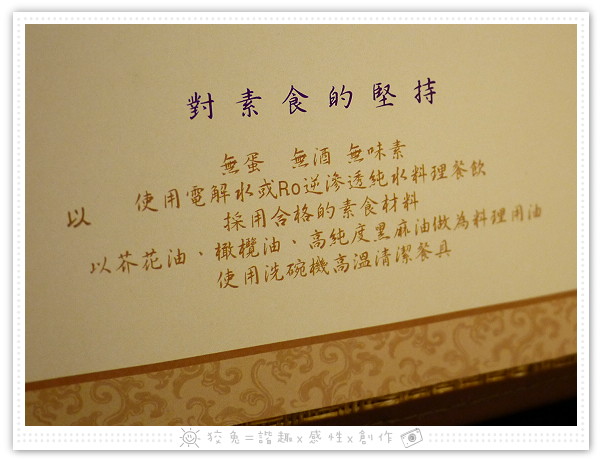 對素食的堅持
無蛋 無酒 無味素
使用電解水或Ro逆滲透純水料理餐飲
以 採用合格的素食材料
以芥花油、橄欖油、高純度黑麻油做為料理用油
使用洗碗機高溫清潔餐具
狡兔=諧趣x感性x創作